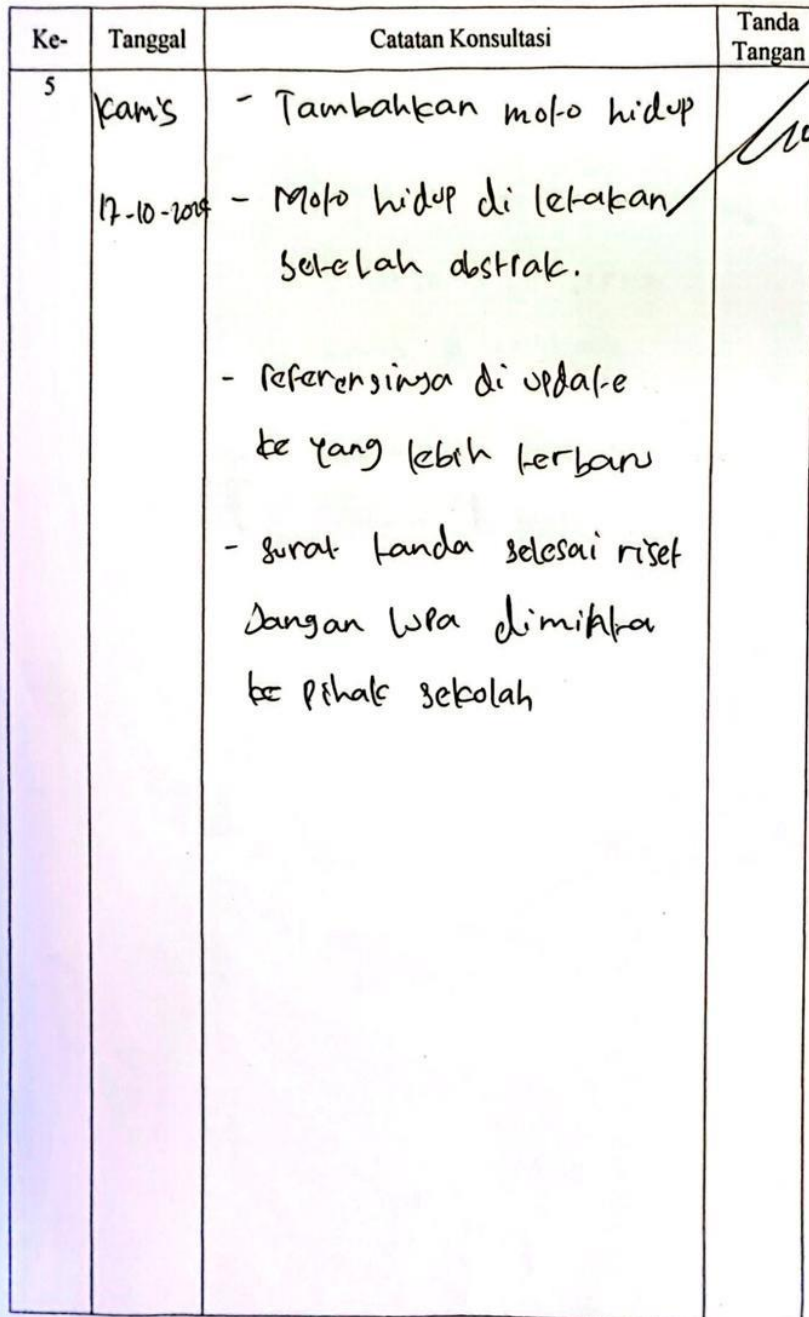 Ke- Tanggal Catatan Konsultasi Tanda Tangan
5 Kamis - Tambahkan moto hidup
17-10-2024 - Moto hidup di letakan
setelah abstrak.
- referensinya di update
ke yang lebih terbaru
- surat tanda selesai riset
Jangan lupa diminta
ke pihak sekolah